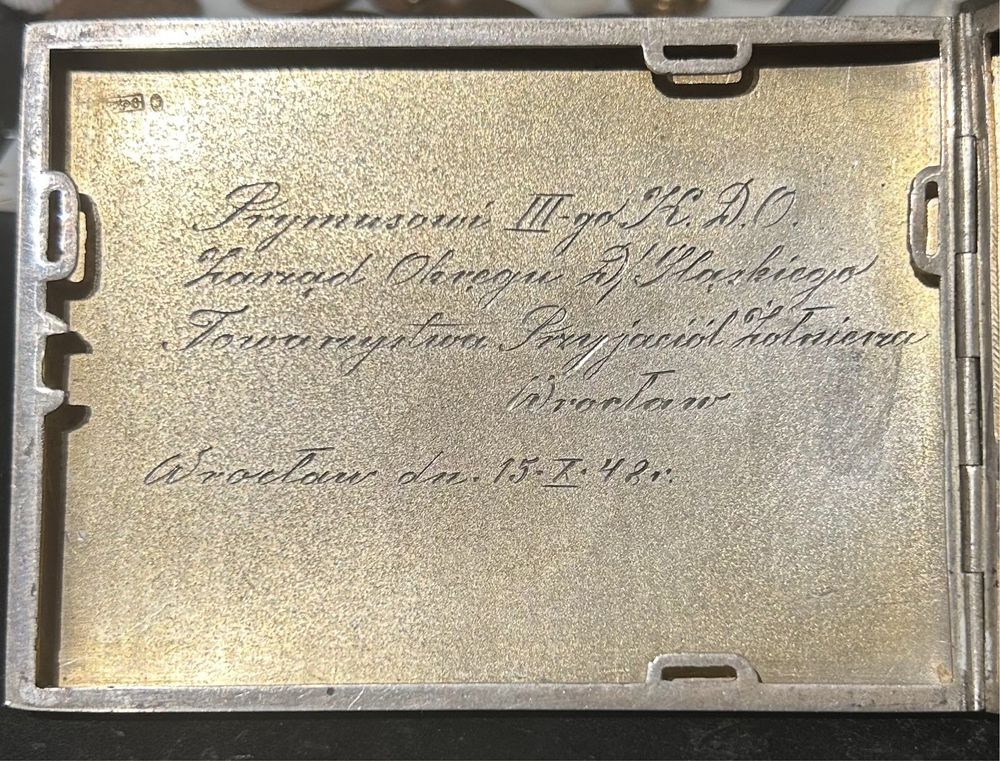 Prymusowi III-go K.D.O.
Zarząd Okręgu D/Śląskiego
Towarzystwa Przyjaciół Żołnierza
Wrocław
Wrocław dn. 15-X-48r.